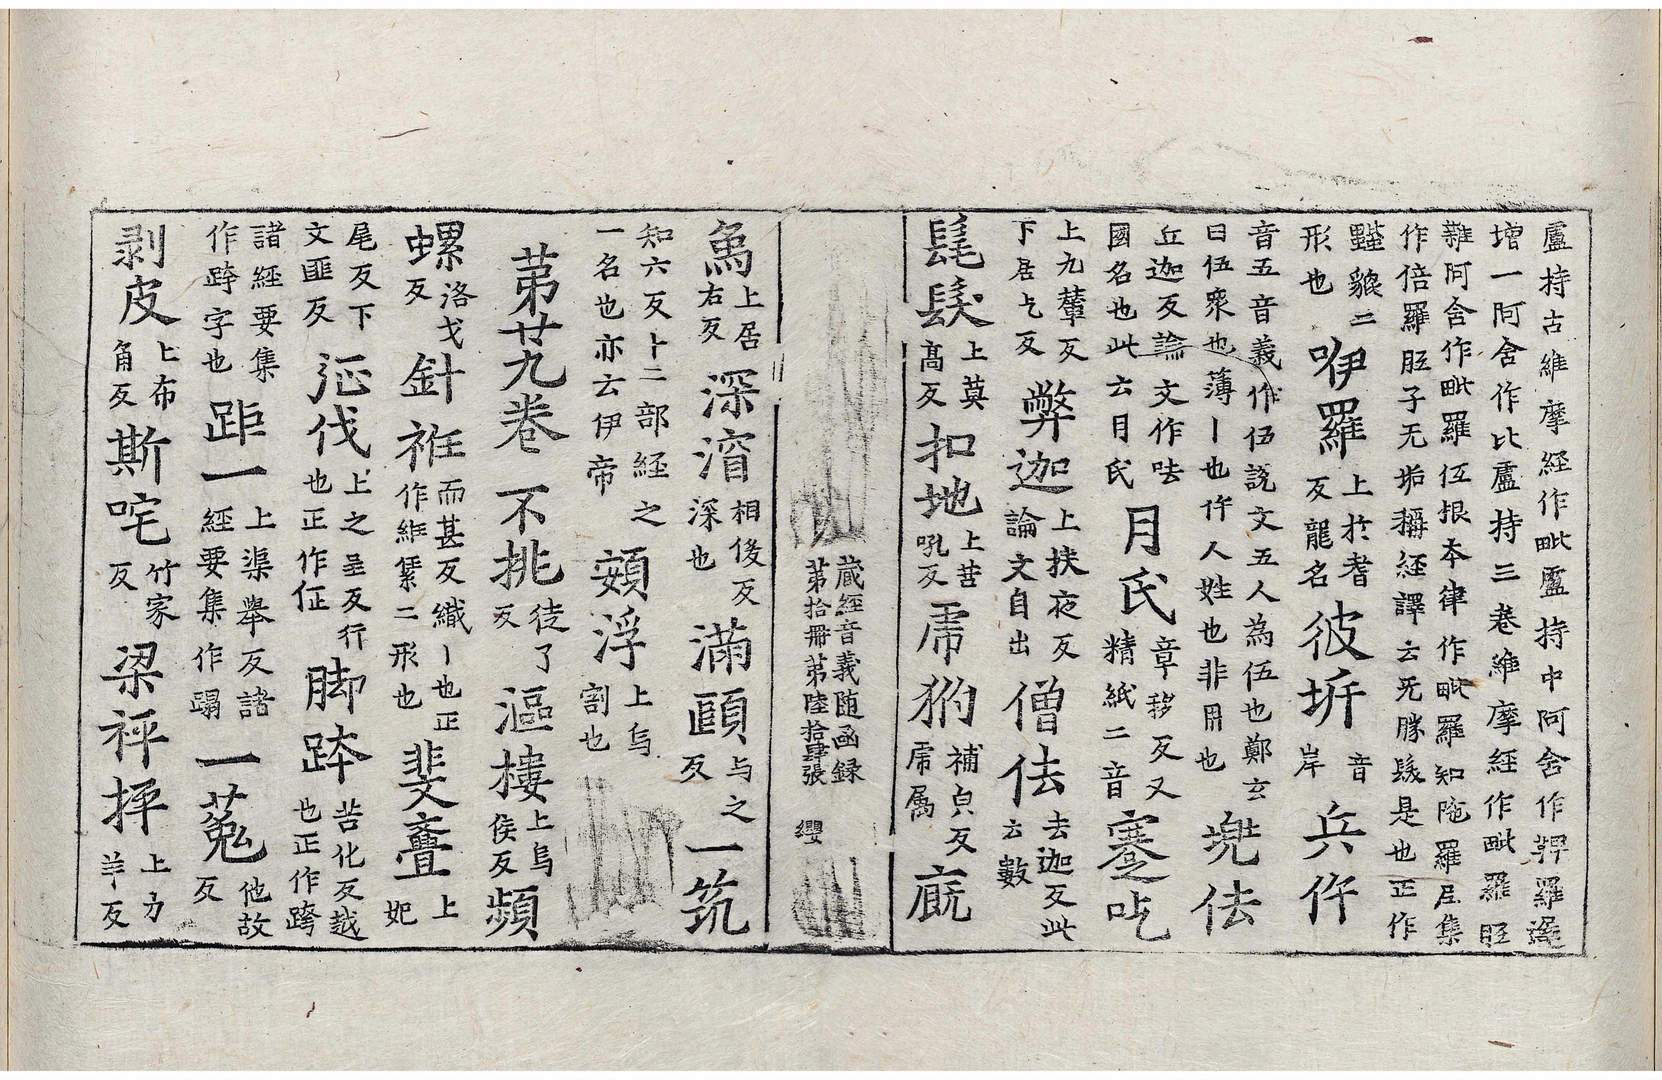 盧持古維摩経作毗盧持中阿舍作㹃羅遮
增一阿舍作比盧持三巻維摩経作毗羅胝
雜阿舍作毗羅伍根本律作毗羅知陁羅尼集
作倍羅胝子无垢稱経譯云无勝髮是也正作
䵴貌二
形也
咿羅
上於耆
反龍名
彼坼
音
岸
兵仵
音五音義作伍説文五人為伍也鄭玄
曰伍衆也薄丨也仵人姓也非用也
兠佉
丘迦反論文作呿
國名也此云月氏
月氏
章移反又
精紙二音
蹇吃
上九輦反
下居乞反
弊迦
上挟夜反
論文自出
僧佉
去迦反此
云數
髦髮
上莫
髙反
扣地
上苦
吼反
虎豹
補皃反
虎属
廐
蔵經音義随函録
第拾冊第陸拾肆張
纓
上居
右反
深㵫
相俊反
深也
滿頤
与之
反
一筑
知六反卜二部経之
一名也亦云伊帝
頞浮
上烏
割也
第廿九卷
不挑
徒了
反
漚樓
上烏
侯反
頻
螺
洛戈
反
針袵
而甚反織丨也正
作維䋲二形也
斐亹
上
妃
尾反下
文匪反
征伐
上之呈反行
也正作征
脚跨
苦化反越
也正作跨
諸経要集
作跨字也
距一
上渠舉反諸
経要集作蹋
一菟
他故
反
剥皮
上布
角反
斯咤
竹家
反
梁秤抨
上力
羊反